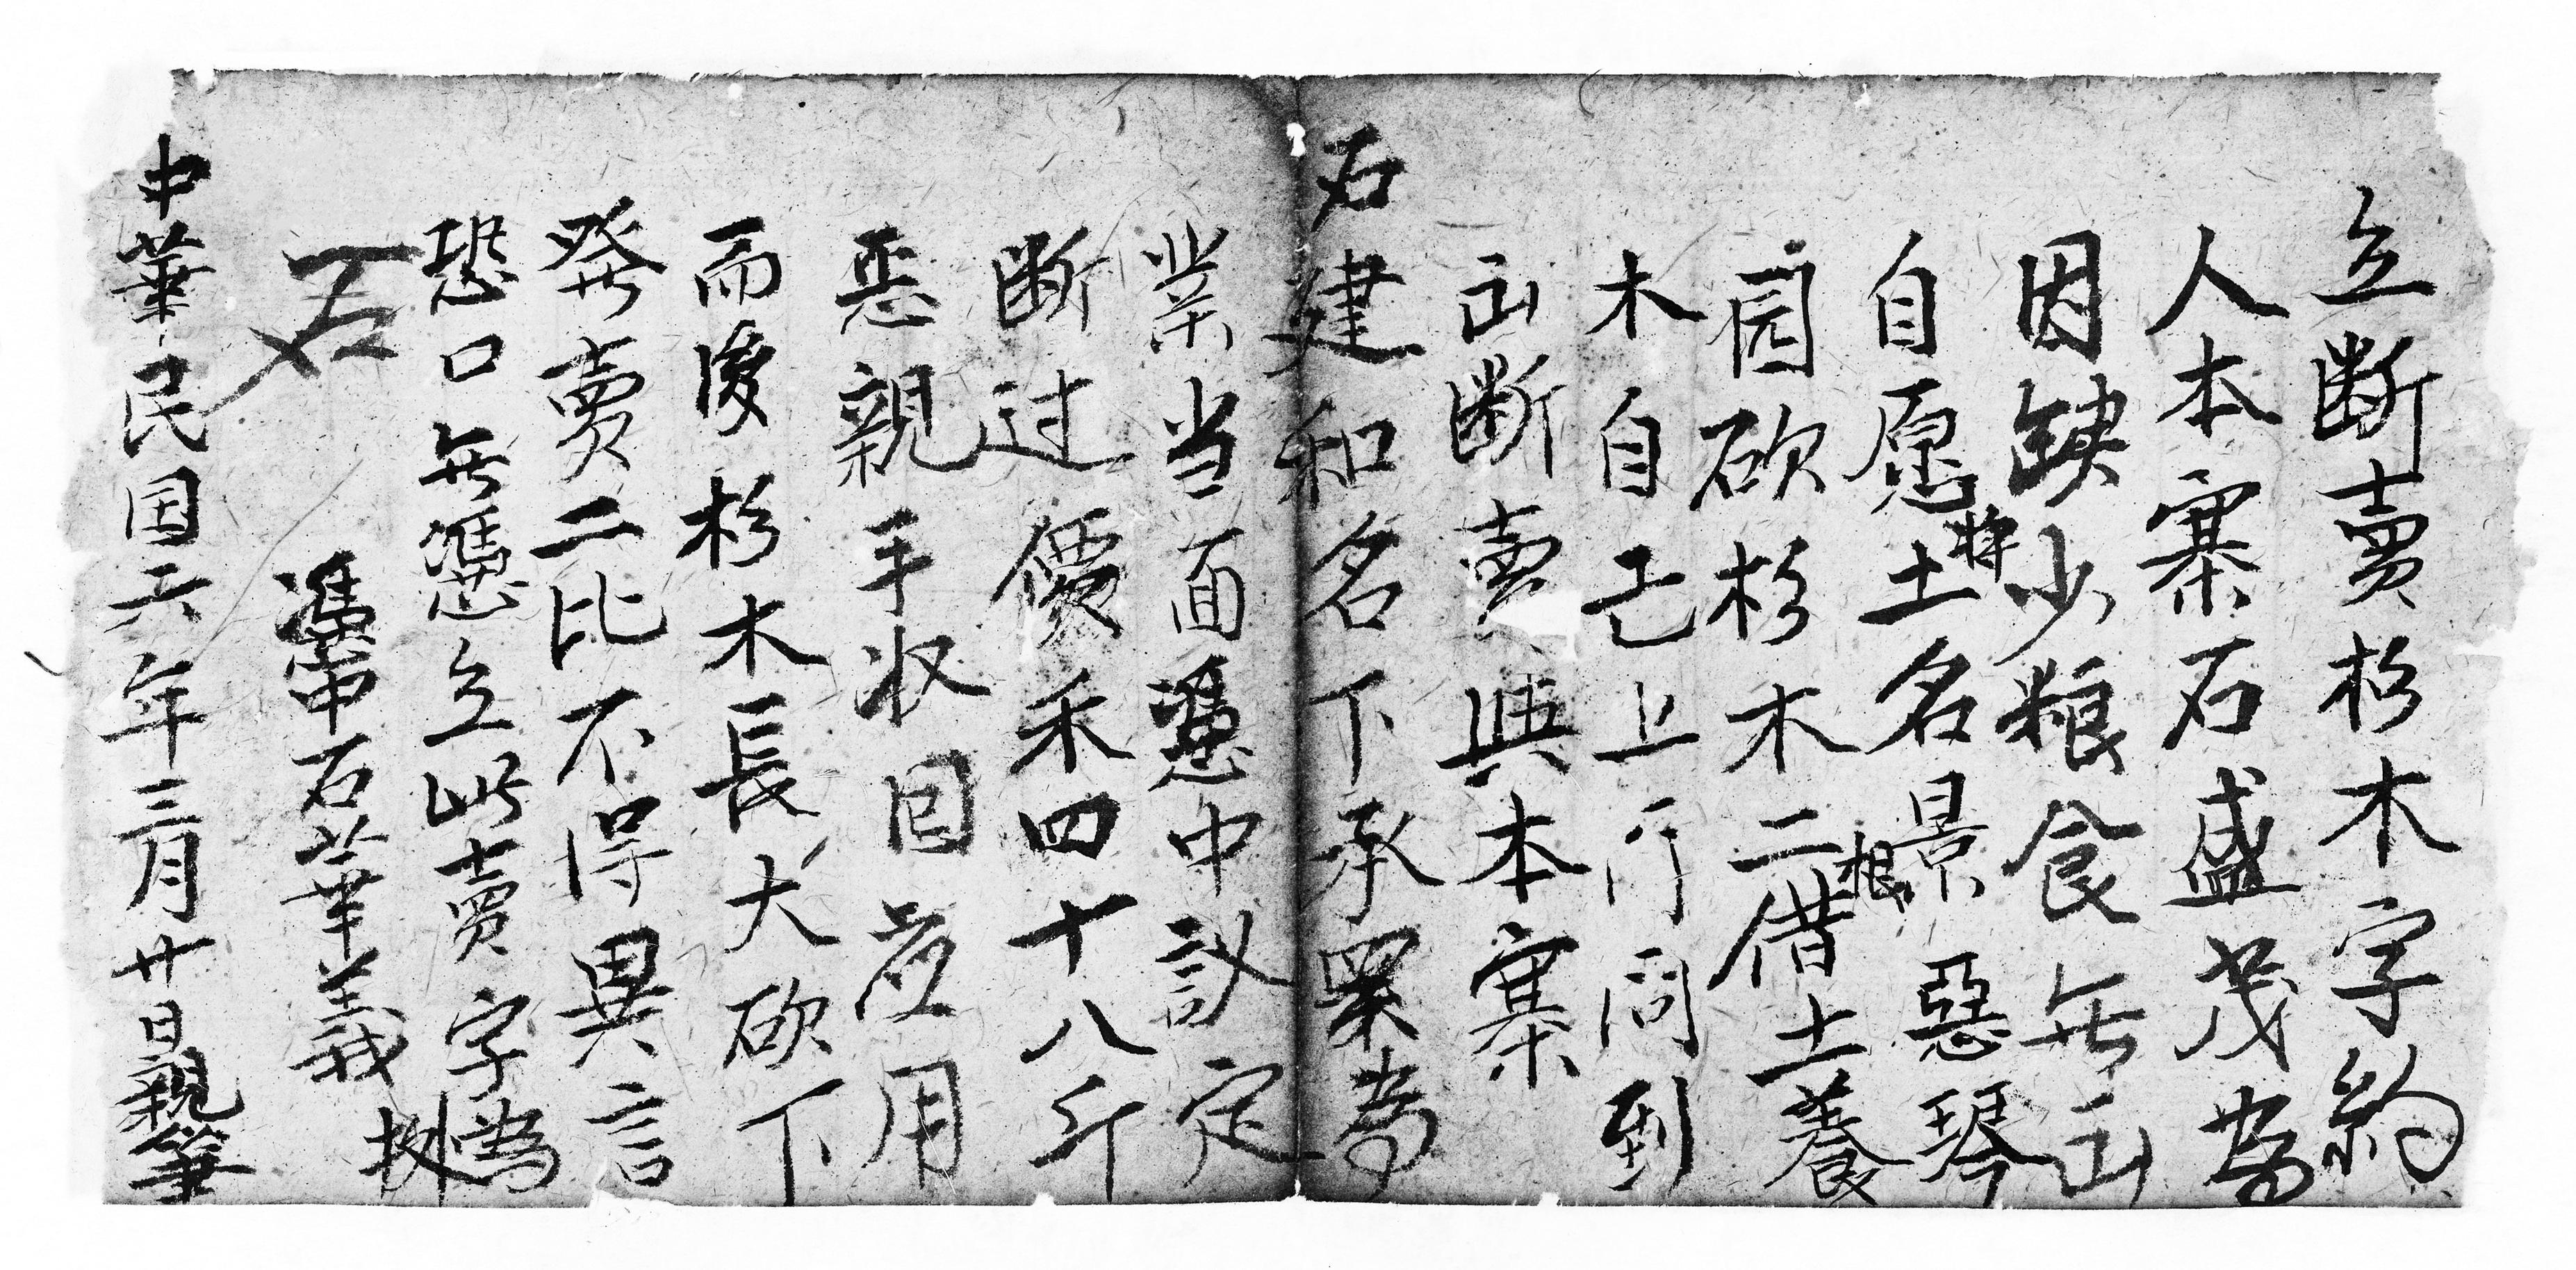 立断賣杉木字約
人本寨石盛茂為
因缺少粮食無山
自愿將土名景惡琴
园砍杉木二根借土養
木自己上门問到
山断賣與本寨
石建和名下承買為
業当面憑中议定
断过價禾四十八斤
惡親手收回应用
而後杉木長大砍下
發賣二比不得異言
恐口無憑立此賣字為
據
憑中石華義
中華民国六年三月廿日親筆